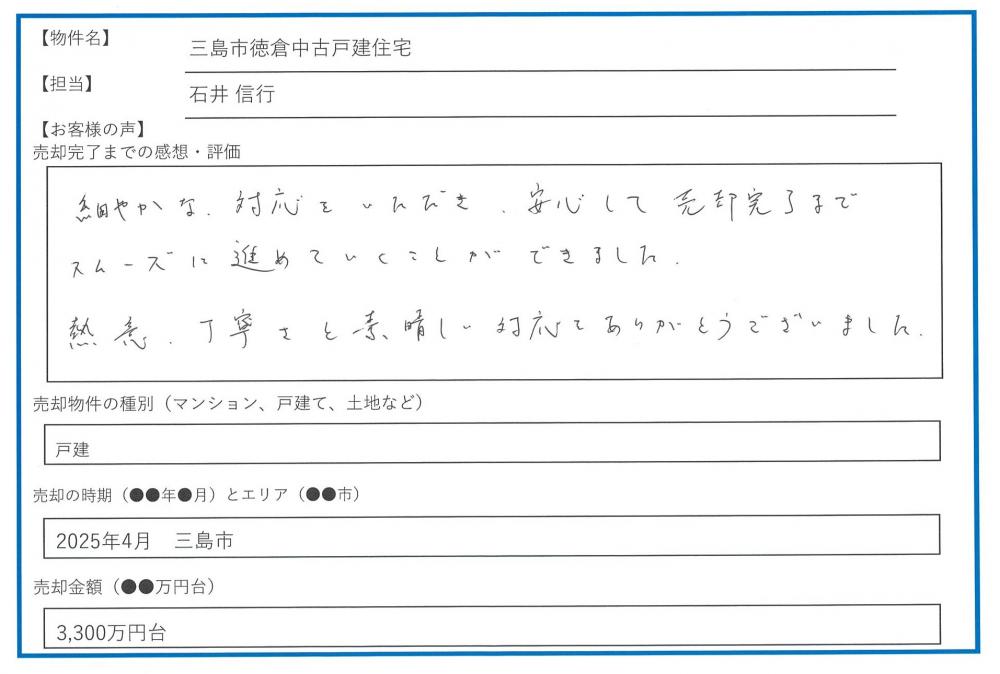 【物件名】
三島市徳倉中古戸建住宅
【担当】
石井 信行
【お客様の声】
売却完了までの感想・評価
細やかな、対応をいただき、安心して売却完了まで
スムーズに進めていくことができました。
熱意、丁寧さと素晴しい対応でありがとうございました。
売却物件の種別（マンション、戸建て、土地など）
戸建
売却の時期（●●年●月）とエリア（●●市）
2025年4月　三島市
売却金額（●●万円台）
3,300万円台